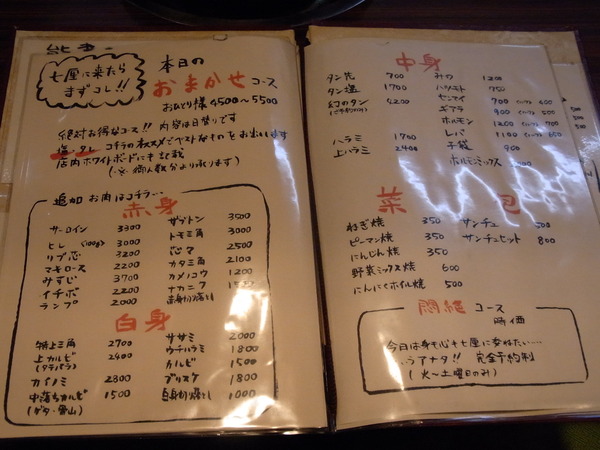 七厘に来たら
まずコレ!!
本日の
おまかせコース
おひとり様 4500〜5500
絶対お得なコース!! 内容は日替りです
塩・タレ コチラのオススメでベストなものをお出しします
店内ホワイトボードにも記載
(※ 御人数分より承ります)
追加 お肉はコチラ…
赤身
サーロイン 3300
ヒレ (100g) 3000
リブ芯 3200
マキロース 2200
みすじ 3700
イチボ 2200
ランプ 2000
ザブトン 3500
トモ三角 3000
芯々 2500
カタ三角 2100
カメノコウ 1200
ナカニク
白身
特上三角 2700
上カルビ 2400
(タテバラ)
カイノミ 2300
中落ちカルビ 1500
(ゲタ・蛍山)
ササミ 2000
ウチハラミ 1800
カルビ 1500
ブリスケ 1800
自身切り落とし 1000
中身
タン先 700
タン塩 1700
幻のタン 4200
ハラミ 1700
上ハラミ 2400
ミノ 1200
ハツモト 750
センマイ 700
ギアラ 900
ホルモン
レバ
子袋
ホルモンミックス
菜
包
ねぎ焼 350
ピーマン焼 350
にんじん焼 350
野菜ミックス焼 600
にんにくホイル焼 500
サンチュ 500
サンチュセット 800
悶絶コース
時価
今日は身も心も七厘に委ねたい…
アナタ!! 完全予約制
(火〜土曜日のみ)